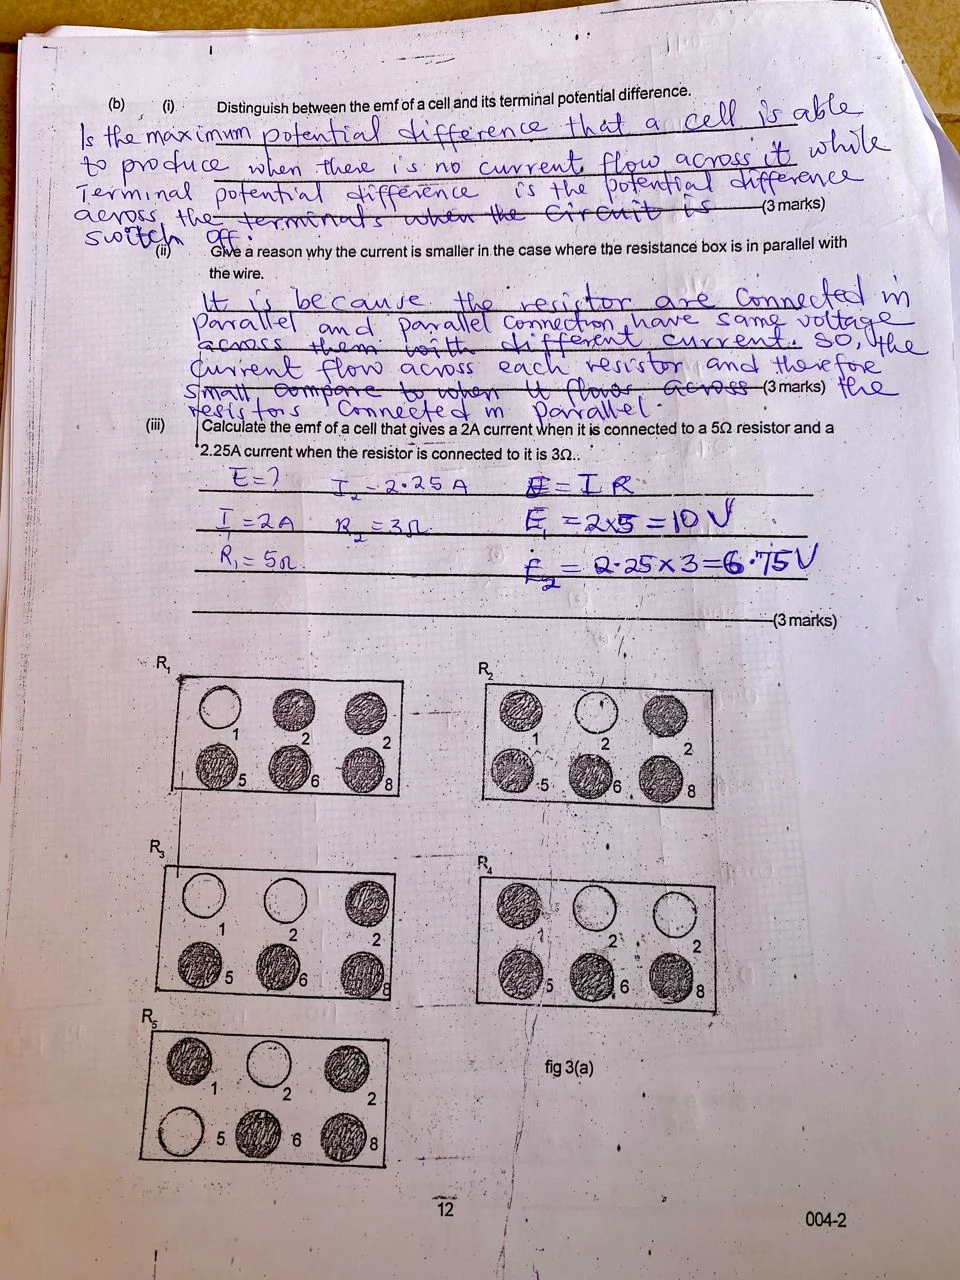 (b) (i) Distinguish between the emf of a cell and its terminal potential difference.
Is the maximum potential difference that a cell is able
to produce when there is no current flow across it while
Terminal potential difference is the potential difference
across the terminals when the circuit is (3 marks)
switch off.
(ii) Give a reason why the current is smaller in the case where the resistance box is in parallel with
the wire.
It is because the resistor are connected in
parallel and parallel connection have same voltage
across them with different current. So, the
current flow across each resistor and therefore
small compare to when it flows across (3 marks) the
resistors connected in parrallel.
(iii) Calculate the emf of a cell that gives a 2A current when it is connected to a 5Ω resistor and a
2.25A current when the resistor is connected to it is 3Ω..
E=? I2 - 2.25A E = IR
I = 2A R2 = 3Ω E1 = 2x5 = 10V
R1 = 5Ω. E2 = 2.25 x 3 = 6.75V
(3 marks)
R1 R2
1 2 2 1 2 2
5 6 8 5 6 8
R3 R4
1 2 2 1 2 2
5 6 8 5 6 8
R5
1 2 2
fig 3(a)
5 6 8
12
004-2